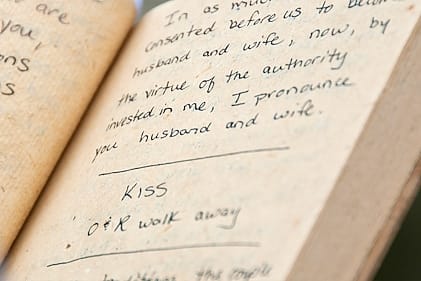 are
you,
ons
s
In as much
consented before us to become
husband and wife, now, by
the virtue of the authority
invested in me, I pronounce
you husband and wife.
KISS
O & R walk away
the couple